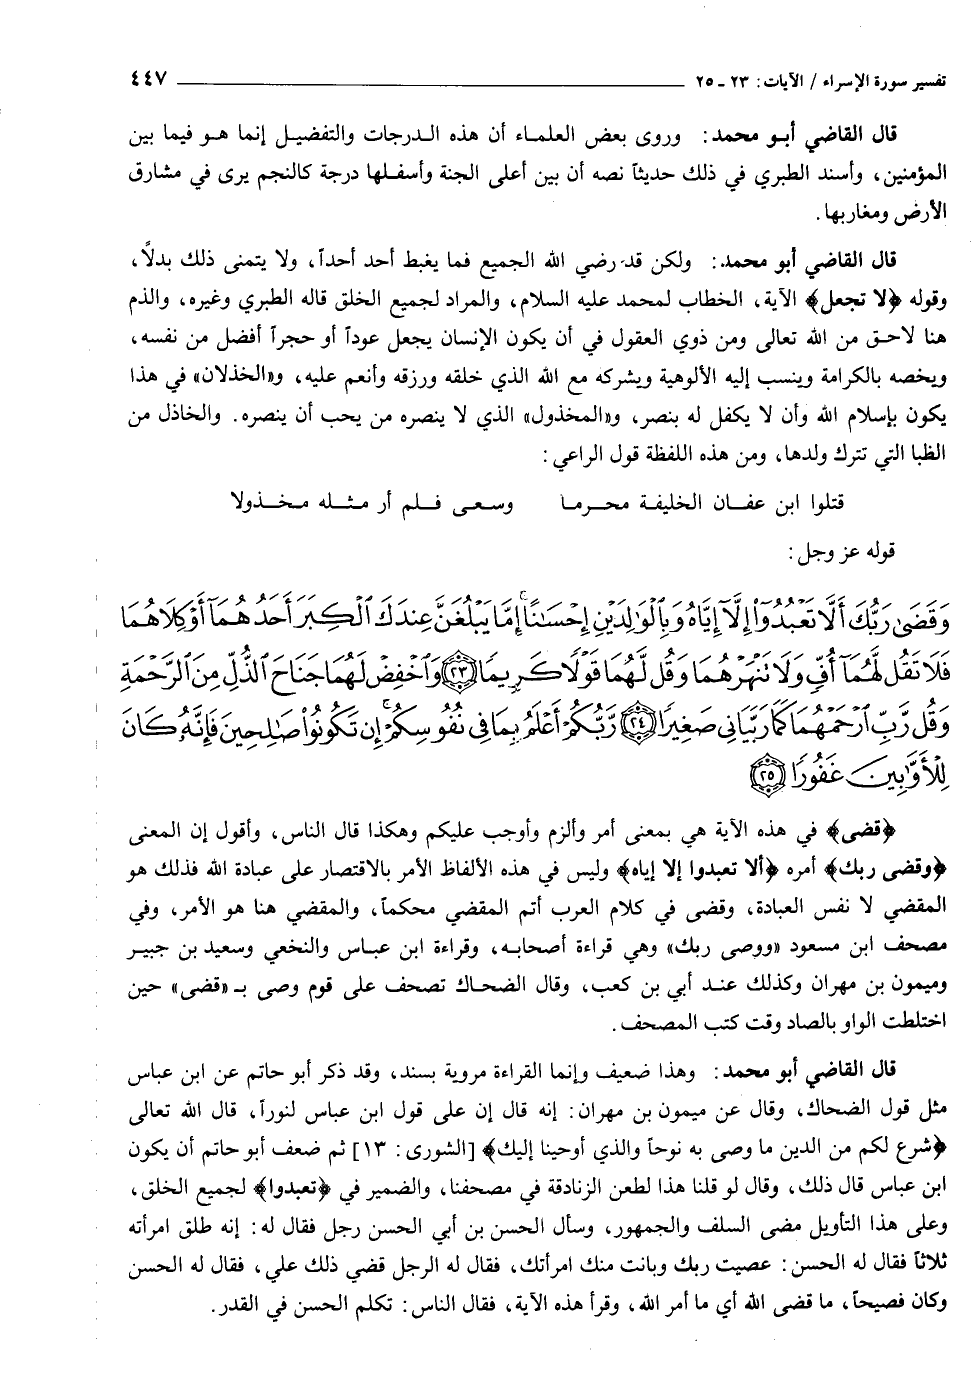 تفسير سورة الإسراء / الآيات: ٢٣ ـ ٢٥ ٤٤٧
قال القاضي أبو محمد: وروى بعض العلماء أن هذه الدرجات والتفضيل إنما هو فيما بين
المؤمنين، وأسند الطبري في ذلك حديثاً نصه أن بين أعلى الجنة وأسفلها درجة كالنجم يرى في مشارق
الأرض ومغاربها.
قال القاضي أبو محمد: ولكن قد رضي الله الجميع فما يغبط أحد أحداً، ولا يتمنى ذلك بدلاً،
وقوله ﴿لا تجعل﴾ الآية، الخطاب لمحمد عليه السلام، والمراد لجميع الخلق قاله الطبري وغيره، والذم
هنا لاحق من الله تعالى ومن ذوي العقول في أن يكون الإنسان يجعل عوداً أو حجراً أفضل من نفسه،
ويخصه بالكرامة وينسب إليه الألوهية ويشركه مع الله الذي خلقه ورزقه وأنعم عليه، و«الخذلان» في هذا
يكون بإسلام الله وأن لا يكفل له بنصر، و«المخذول» الذي لا ينصره من يحب أن ينصره. والخاذل من
الظبا التي تترك ولدها، ومن هذه اللفظة قول الراعي:
قتلوا ابن عفان الخليفة محرما وسعى فلم أر مثله مخذولا
قوله عز وجل:
وَقَضَىٰ رَبُّكَ أَلَّا تَعْبُدُوٓا۟ إِلَّآ إِيَّاهُ وَبِٱلْوَٰلِدَيْنِ إِحْسَـٰنًا ۚ إِمَّا يَبْلُغَنَّ عِندَكَ ٱلْكِبَرَ أَحَدُهُمَآ أَوْ كِلَاهُمَا
فَلَا تَقُل لَّهُمَآ أُفٍّ وَلَا تَنْهَرْهُمَا وَقُل لَّهُمَا قَوْلًا كَرِيمًا ﴿٢٣﴾ وَٱخْفِضْ لَهُمَا جَنَاحَ ٱلذُّلِّ مِنَ ٱلرَّحْمَةِ
وَقُل رَّبِّ ٱرْحَمْهُمَا كَمَا رَبَّيَانِى صَغِيرًا ﴿٢٤﴾ رَّبُّكُمْ أَعْلَمُ بِمَا فِى نُفُوسِكُمْ ۚ إِن تَكُونُوا۟ صَـٰلِحِينَ فَإِنَّهُۥ كَانَ
لِلْأَوَّٰبِينَ غَفُورًا ﴿٢٥﴾
﴿قضى﴾ في هذه الآية هي بمعنى أمر وألزم وأوجب عليكم وهكذا قال الناس، وأقول إن المعنى
﴿وقضى ربك﴾ أمره ﴿ألا تعبدوا إلا إياه﴾ وليس في هذه الألفاظ الأمر بالاقتصار على عبادة الله فذلك هو
المقضي لا نفس العبادة، وقضى في كلام العرب أتم المقضي محكماً، والمقضي هنا هو الأمر، وفي
مصحف ابن مسعود «ووصى ربك» وهي قراءة أصحابه، وقراءة ابن عباس والنخعي وسعيد بن جبير
وميمون بن مهران وكذلك عند أبي بن كعب، وقال الضحاك تصحف على قوم وصى بـ «قضى» حين
اختلطت الواو بالصاد وقت كتب المصحف.
قال القاضي أبو محمد: وهذا ضعيف وإنما القراءة مروية بسند، وقد ذكر أبو حاتم عن ابن عباس
مثل قول الضحاك، وقال عن ميمون بن مهران: إنه قال إن على قول ابن عباس لنوراً، قال الله تعالى
﴿شرع لكم من الدين ما وصى به نوحاً والذي أوحينا إليك﴾ [الشورى: ١٣] ثم ضعف أبو حاتم أن يكون
ابن عباس قال ذلك، وقال لو قلنا هذا لطعن الزنادقة في مصحفنا، والضمير في ﴿تعبدوا﴾ لجميع الخلق،
وعلى هذا التأويل مضى السلف والجمهور، وسأل الحسن بن أبي الحسن رجل فقال له: إنه طلق امرأته
ثلاثاً فقال له الحسن: عصيت ربك وبانت منك امرأتك، فقال له الرجل قضي ذلك علي، فقال له الحسن
وكان فصيحاً، ما قضى الله أي ما أمر الله، وقرأ هذه الآية، فقال الناس: تكلم الحسن في القدر.